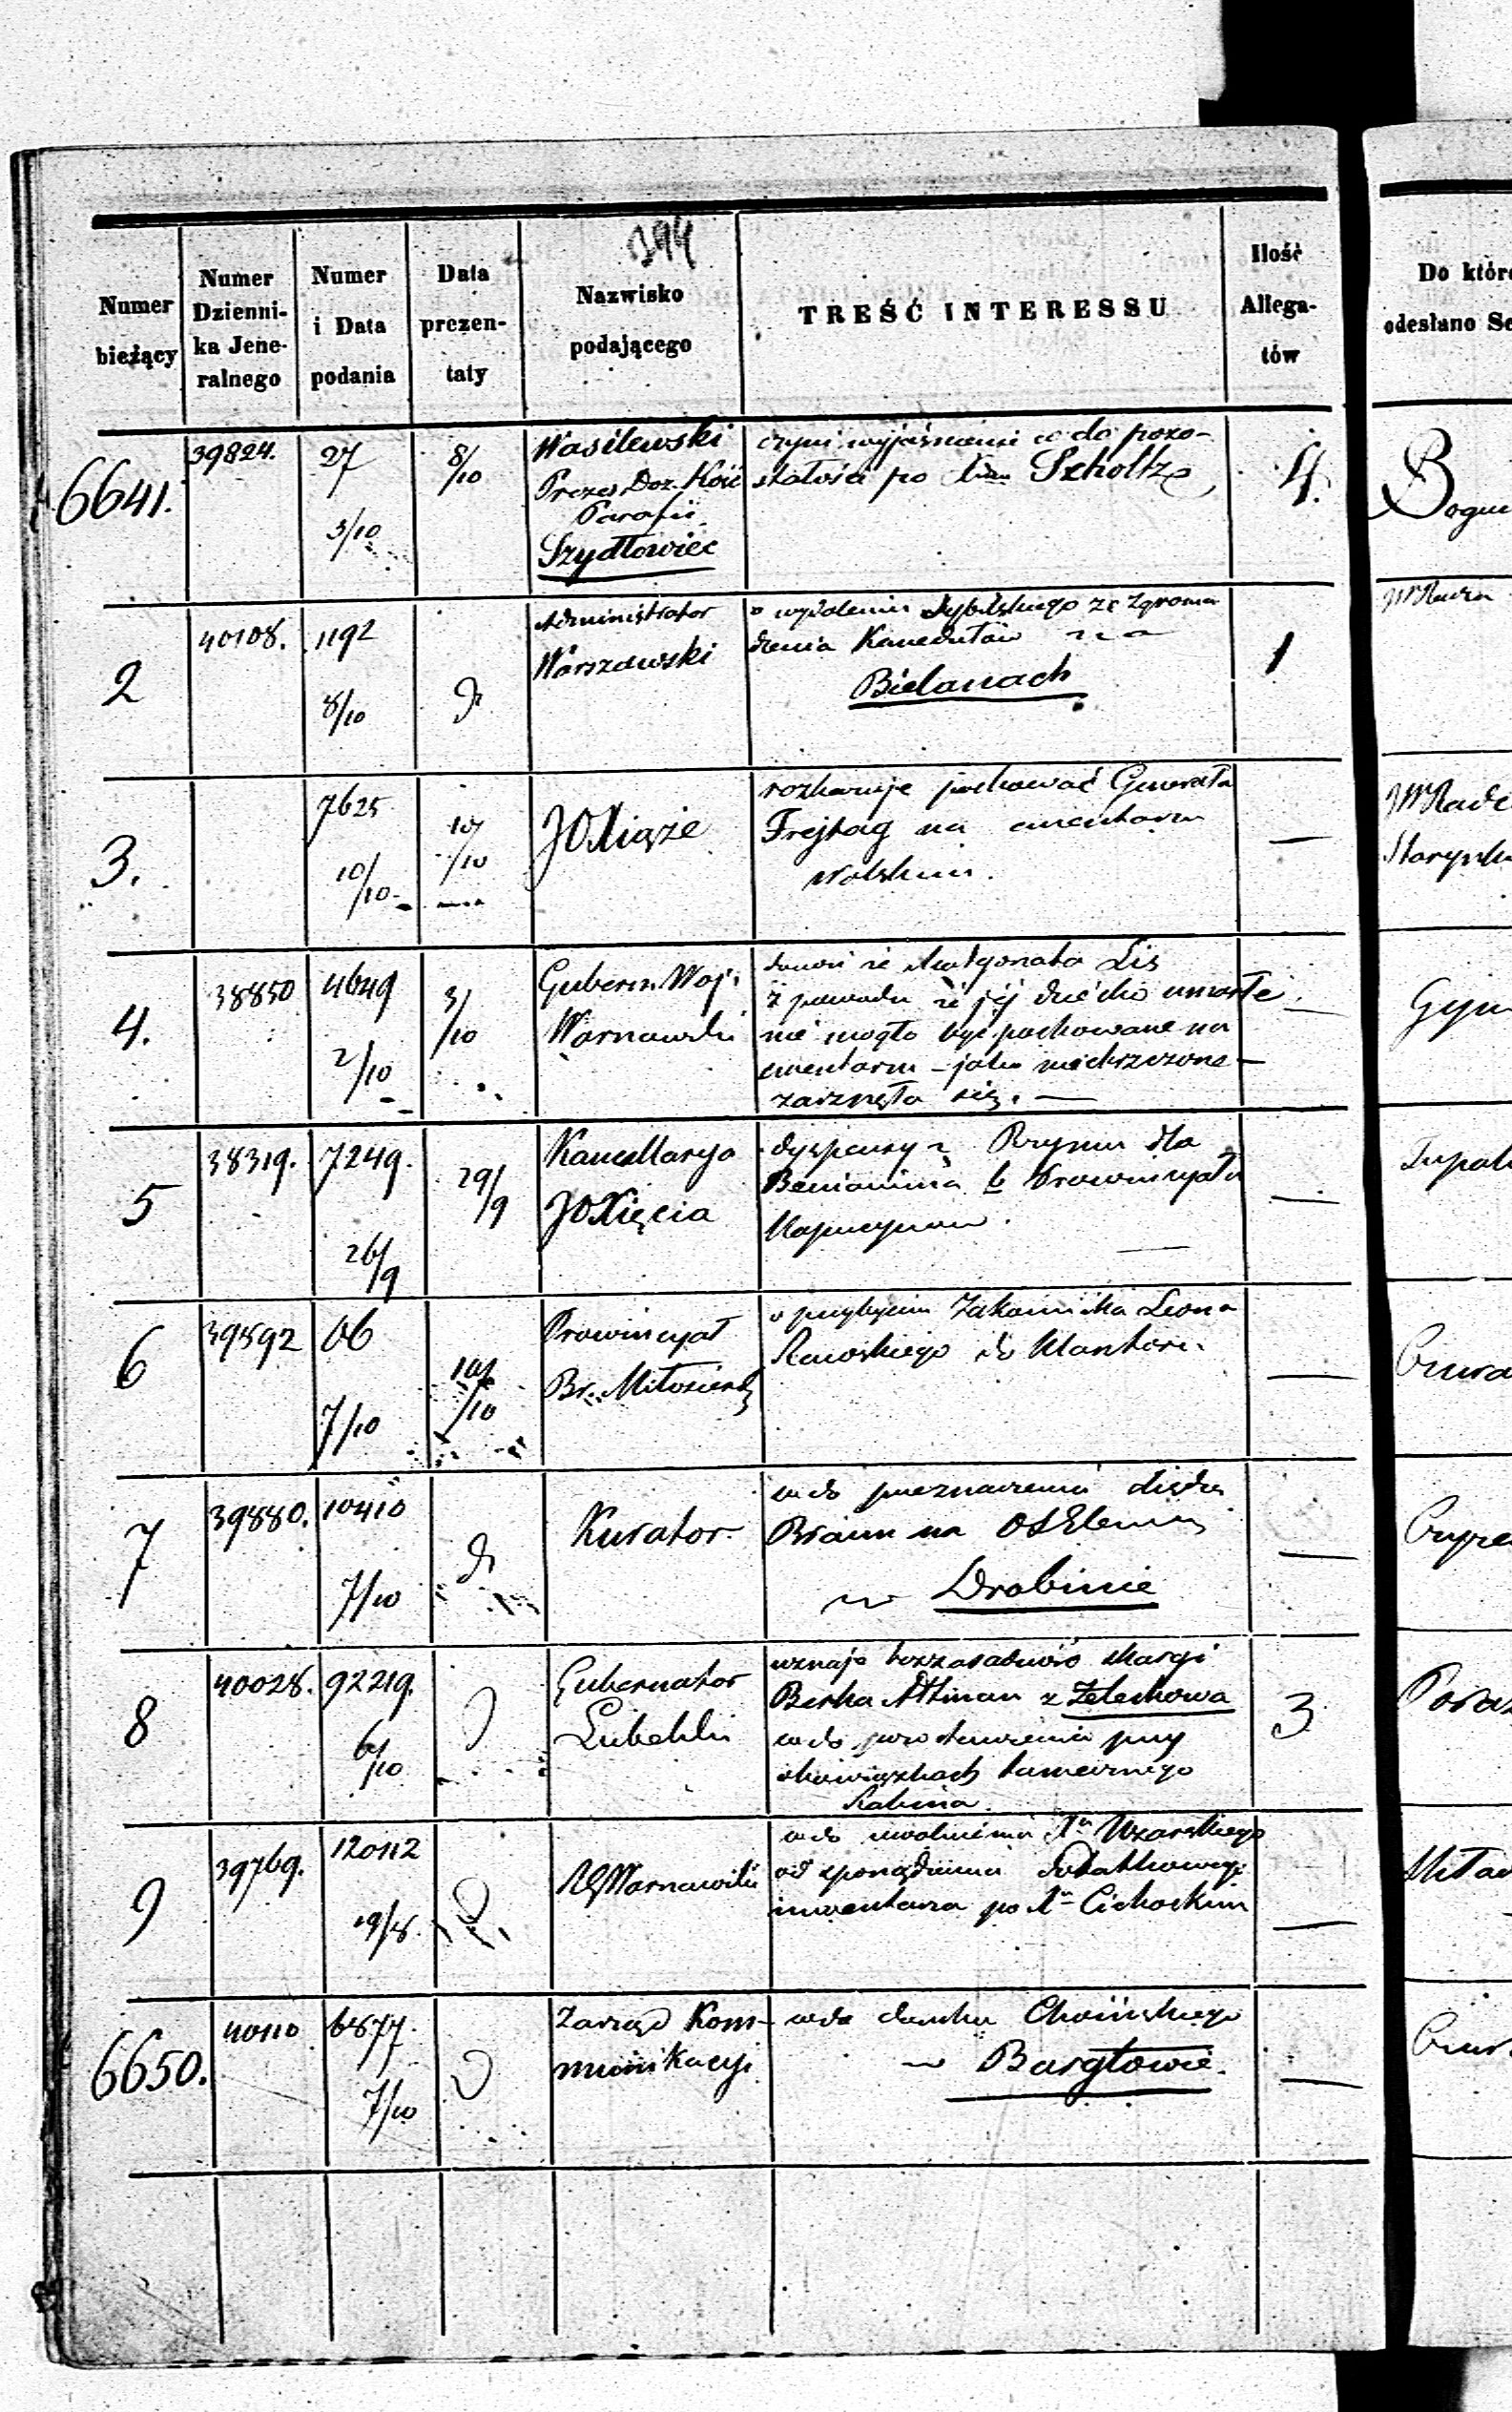 394
Numer bieżący
Numer Dzienni- ka Jene- ralnego
Numer i Data podania
Data prezen- taty
Nazwisko podającego
TREŚĆ INTERESSU
Ilość Allega- tów
Do któr
odesłano Se
6641.
39824.
27
3/10
8/10
Wasilewski
Prezes Doz. Kość
Parafii
Szydłowiec
czyni wyjaśnienie co do pozo-
stałości po Szholtz
4.
2
40108.
1192
8/10
Administrator
Warszawski
o wydaleniu ze Zgroma
dzenia Kamedułów na
Bielanach
1
JWRadca
3.
7625
10/10
10/10
JOXiąże
rozkazuje pochować Generała
Frejtag na cmentarzu
wolskim.
—
JWRadc
Starynk
4.
38850
4649
2/10
3/10
Gubern. Woj.
Warszawski
donosi że Małgorzata Lis
z powodu że jej dziecko umarłe
nie mogło być pochowane na
cmentarzu - jako niechrzczone -
zarznęła się. —
—
5
38319.
7249.
26/9
29/9
Kancellarya
JOXięcia
dyspensy z Rzymu dla
Beniamina b Prowincyała
Kapucynów.
—
6
39592
66
7/10
10/10
Prowincyał
Br. Miłosierdz
o przybyciu Zakonnika Leona
do klasztoru.
—
7
39880.
10410
7/10
Kurator
co do przeznaczenia Księdza
Braun na
w Drobinie
—
8
40028.
92219.
6/10
Gubernator
Lubelski
uznaje bezzasadność skargi
Berka Altman z Żelechowa
co do pozostawienia przy
obowiązkach tamecznego
Rabina.
3
9
39769.
120112
19/8.
RGWarszawski
co do uwolnienia Xa
od sporządzenia dodatkowego
inwentarza po Xu Cichockim
—
6650.
40110
6877.
7/10
Zarząd Kom-
munikacyi
co do Choińskiego
w Bargłowie.
—